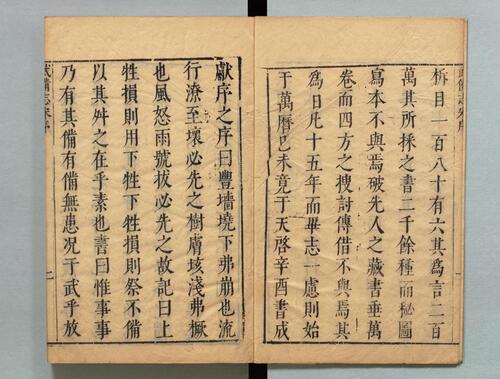 析目一百八十有六其為言二百
萬其所採之書二千餘種而秘圖
寫本不與焉破先人之藏書垂萬
卷而四方之搜討傳借不與焉其
為日凡十五年而畢志一慮則始
于萬曆己未竟于天啓辛酉書成
獻序之序曰豐墻墝下弗崩也流
行潦至壞必先之樹膚垓淺弗橛
也風怒雨號拔必先之故記曰上
牲損則用下牲下牲損則祭不備
以其舛之在乎素也書曰惟事事
乃有其備有備無患况于武乎故
武備志宋序